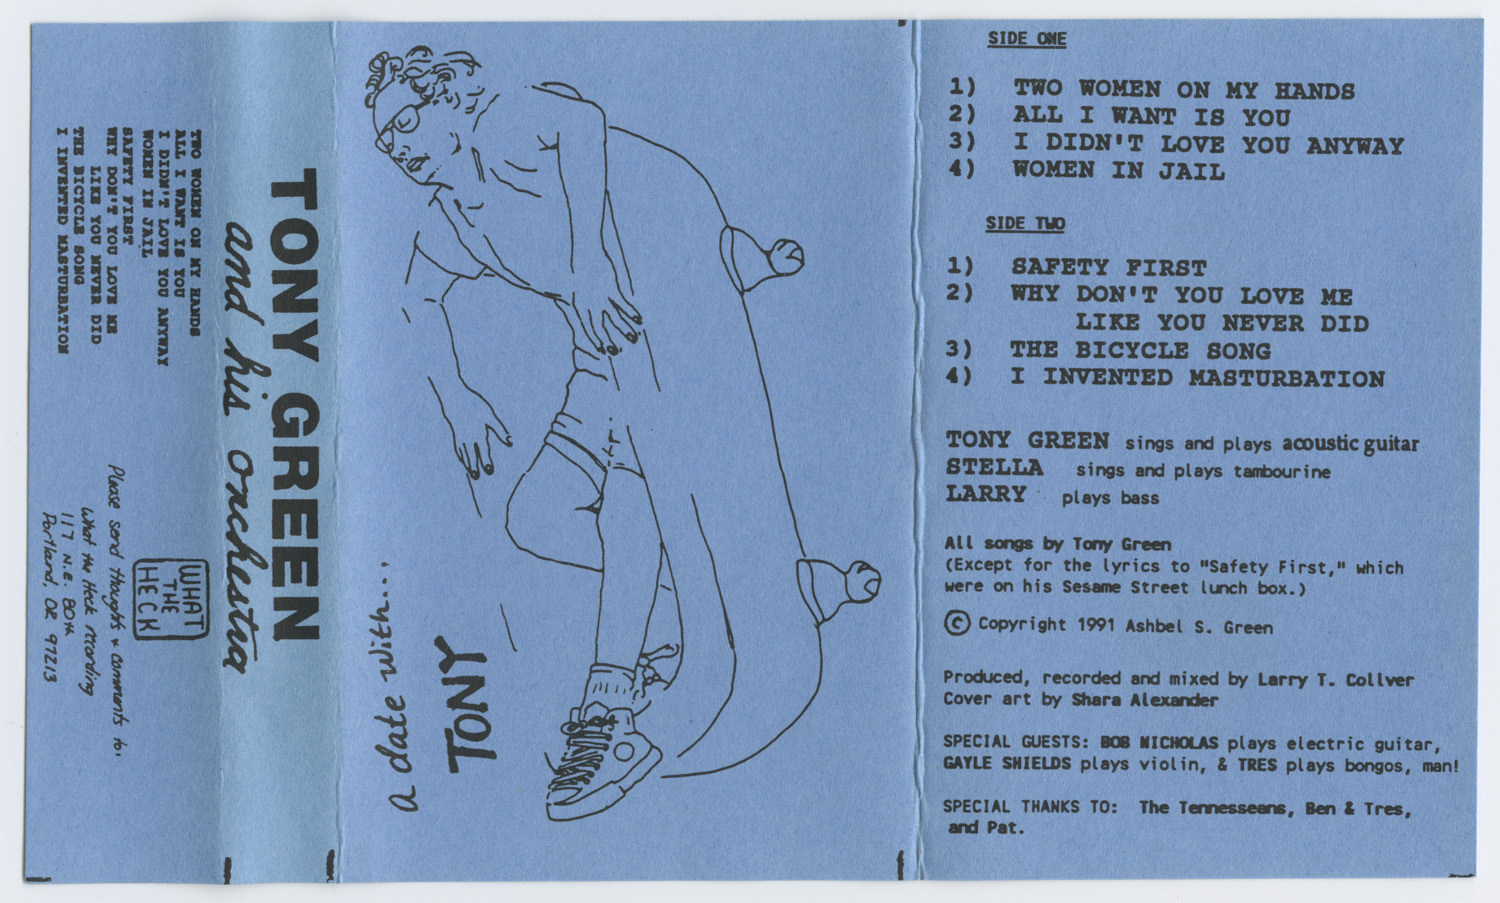 TWO WOMEN ON MY HANDS
ALL I WANT IS YOU
I DIDN'T LOVE YOU ANYWAY
WOMEN IN JAIL
SAFETY FIRST
WHY DON'T YOU LOVE ME
LIKE YOU NEVER DID
THE BICYCLE SONG
I INVENTED MASTURBATION
WHAT
THE
HECK
Please send thoughts & comments to:
What the Heck recording
117 N.E. 80th
Portland, OR 97213
TONY GREEN
and his orchestra
a date with...
TONY
SIDE ONE
1) TWO WOMEN ON MY HANDS
2) ALL I WANT IS YOU
3) I DIDN'T LOVE YOU ANYWAY
4) WOMEN IN JAIL
SIDE TWO
1) SAFETY FIRST
2) WHY DON'T YOU LOVE ME
LIKE YOU NEVER DID
3) THE BICYCLE SONG
4) I INVENTED MASTURBATION
TONY GREEN sings and plays acoustic guitar
STELLA sings and plays tambourine
LARRY plays bass
All songs by Tony Green
(Except for the lyrics to "Safety First," which
were on his Sesame Street lunch box.)
© Copyright 1991 Ashbel S. Green
Produced, recorded and mixed by Larry T. Collver
Cover art by Shara Alexander
SPECIAL GUESTS: BOB NICHOLAS plays electric guitar,
GAYLE SHIELDS plays violin, & TRES plays bongos, man!
SPECIAL THANKS TO: The Tennesseans, Ben & Tres,
and Pat.